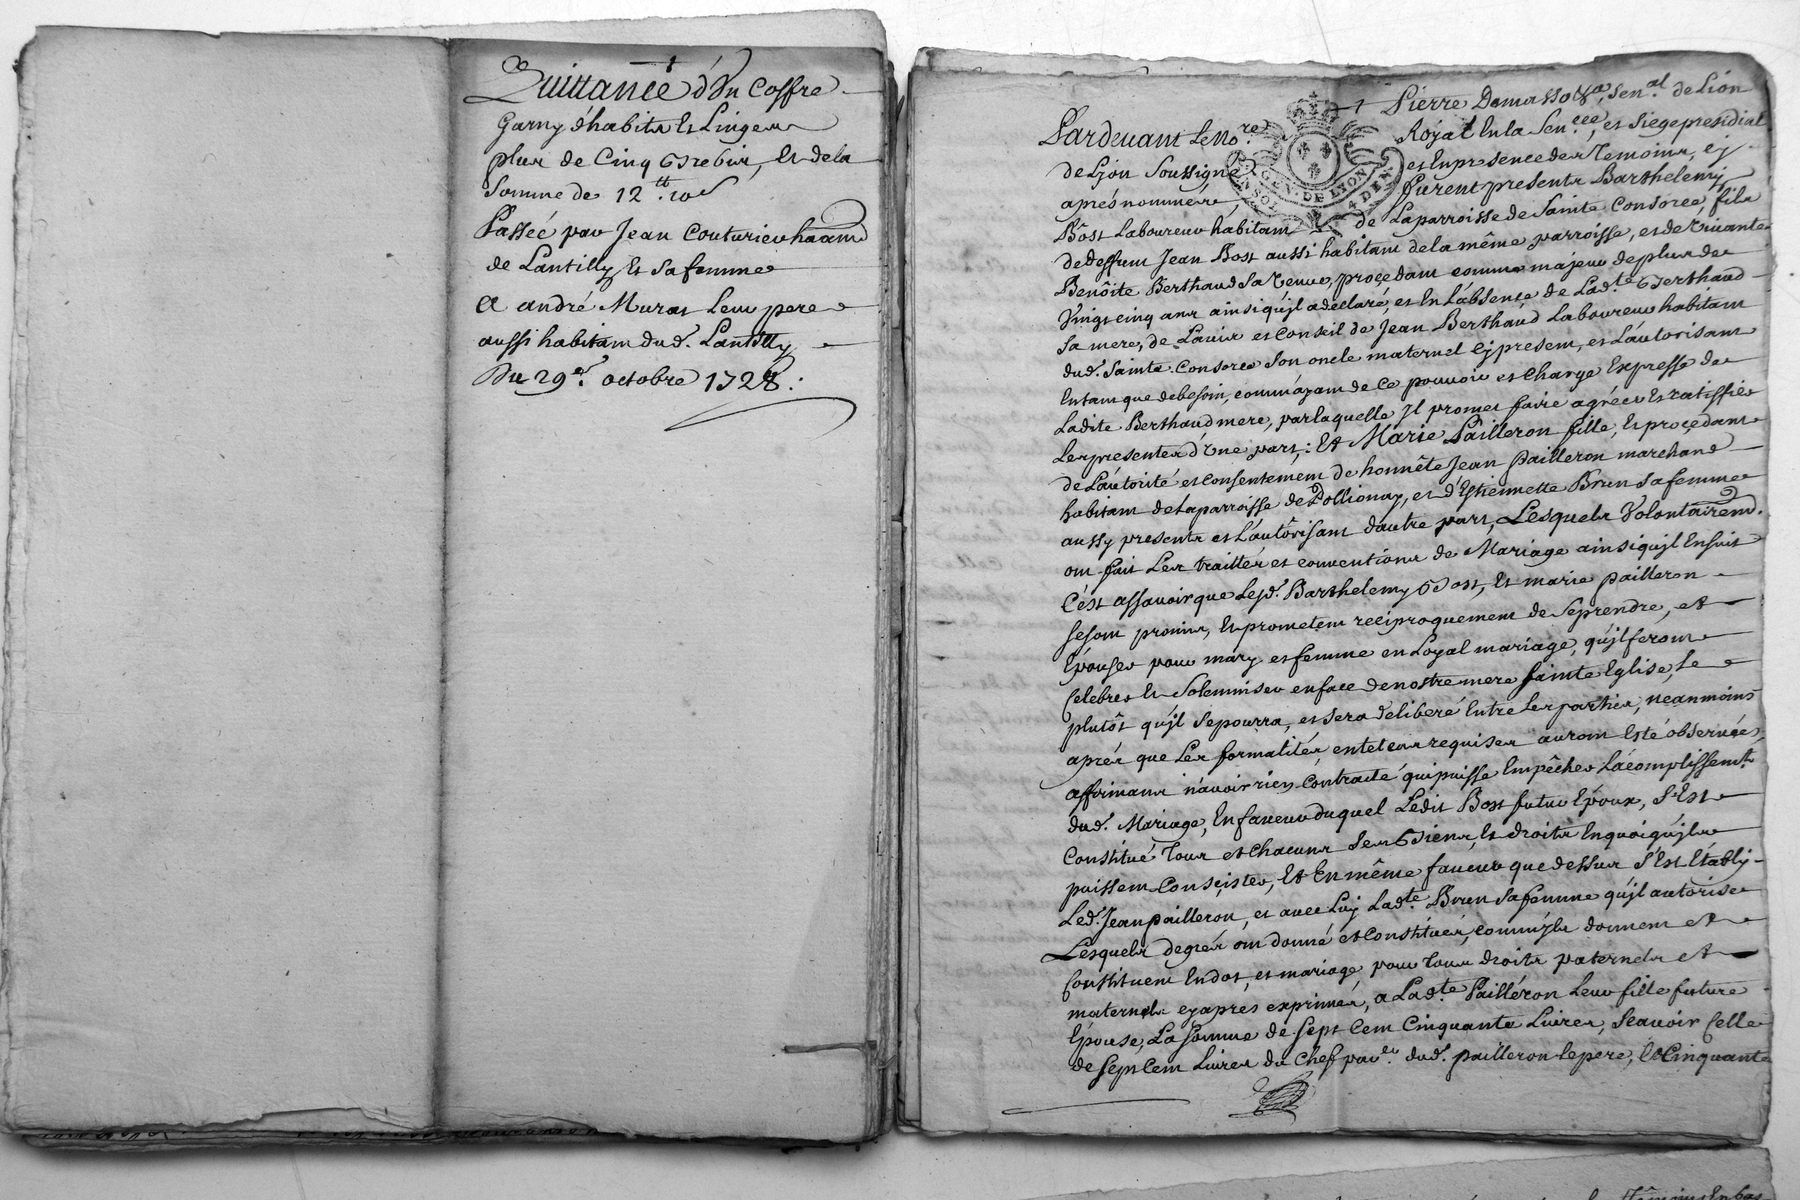 Quittance d'Un Coffre
Garny d'habits Et Linges
plus de Cinq Brebis, Et de la
Somme de 12 ₶. 10 s
Passée par Jean Couturieu haant
de Lantilly Et Sa femme
A andré Muras Leur pere
aussi habitant dud. Lantilly
Du 29e. octobre 1728.
Pierre Demasso &a, Sen.al de Lion
Pardevant Le No.re Royal En la Sen.cee, et Siege presidial
de Lyon Soussigné et En presence des Temoins, cy
GEN. DE LYON
4 DEN
aprés nommés furent presents Barthelemy
Bôst Laboureur habitant de La parroisse de Sainte Consorce, fils
de deffunt Jean Bost aussi habitant de la même parroisse, et de vivante
Benôite Berthaud Sa Veuve, proçedant comme majeur de plus de
Vingt cinq ans ainsi qu'jl a declaré, et En L'absençe de Lad.te Berthaud
Sa mere, de L'avis et Conseil de Jean Berthaud Laboureur habitant
dud. Sainte Consorce Son oncle maternel cy present, et L'autorisant
Entant que de besoin, comm'ayant de Ce pouvoir et Charge Expresse de
Ladite Berthaud mere, par laquelle Jl promet faire agréer Et ratiffier
Les presentes d'Une part: Et Marie Pailleron fille, Et proçedant
de L'autorité et Consentement de honnête Jean Pailleron marchand
habitant de La parroisse de Pollionay, et d'Estiennette Brun Sa femme
aussy presents et L'autôrisant d'autre part, Lesquels Volontairemt.
ont fait Les traittés et conventions de Mariage ainsi qu'jl Ensuit
C'ést assavoir que Led. Barthelemy Bost, Et marie pailleron
se sont promis, Et prometent reciproquement de Se prendre, et
Epouser pour mary et femme en Loyal mariage, qu'jl feront
Celebrer Et Solemniser en face de nostre mere Sainte Eglise, Le
plutôt qu'jl Se pourra, et Sera deliberé Entre Les parties, neanmoins
aprés que Les formalités en tel cas requises auront Esté observées,
affirmans n'avoir rien contracté qui puisse Empêcher L'acomplissemt.
dud. Mariage, En faveur duquel Ledit Bost futur Epoux, S'Est
Constitué Tous et chacuns Ses Biens, Et droits En quoi qu'jls
puissent Consçister, Et En même faveur que dessus S'Est Etably
Led. Jean pailleron, et avec Luy Lad.te Brun Sa femme qu'jl autorise
Lesquels de grés ont donné et Constitués, comm'jls donnent et
Constituent En dot, et mariage pour Tous droits paternels et
maternels cy apres exprimés, a Lad.te Pailléron Leur fille future
Epouse, La Somme de Sept Cent Cinquante Livres, Scavoir Celle
de Sept Cent Livres du Chef par.el dud. pailleron Le pere, Et Cinquante